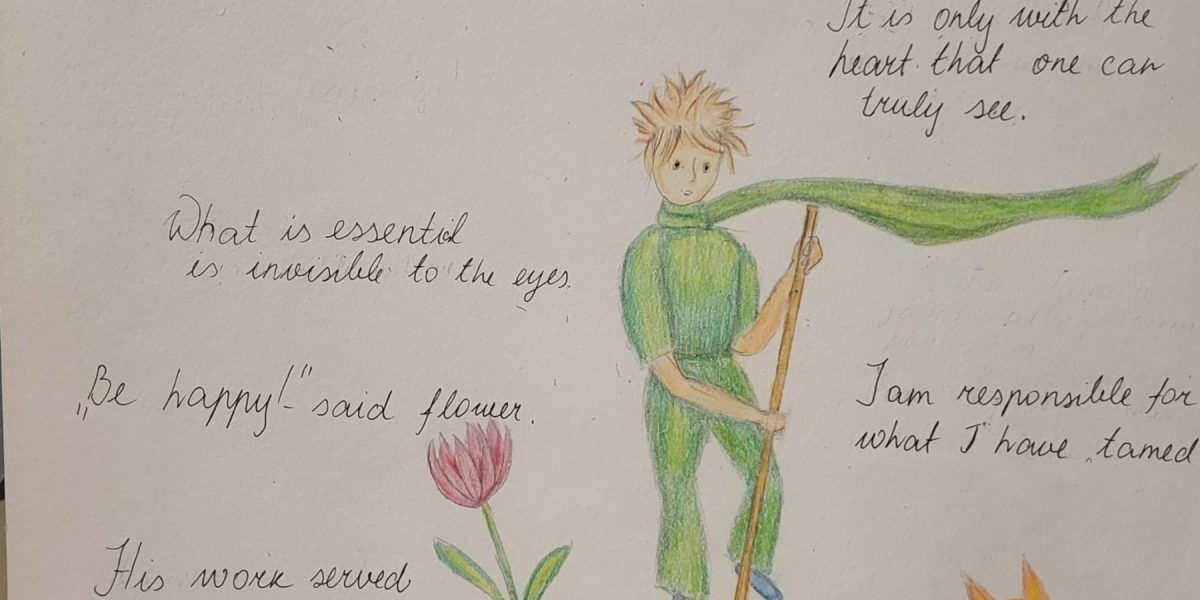 It is only with the
heart that one can
truly see.
What is essential
is invisible to the eyes.
„Be happy!" - said flower.
I am responsible for
what I have tamed
His work served